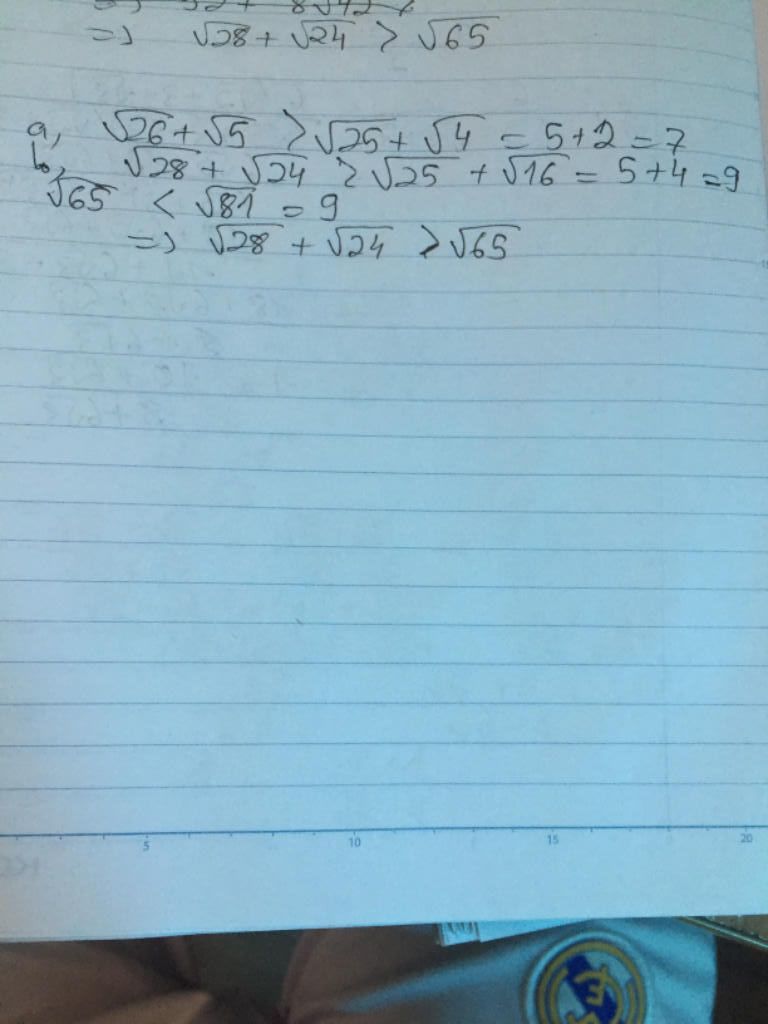 => 52 + 8√42 >
=> √28 + √24 > √65
a, √26 + √5 > √25 + √4 = 5+2 = 7
b, √28 + √24 > √25 + √16 = 5+4 = 9
√65 < √81 = 9
=> √28 + √24 > √65
5 10 15 20